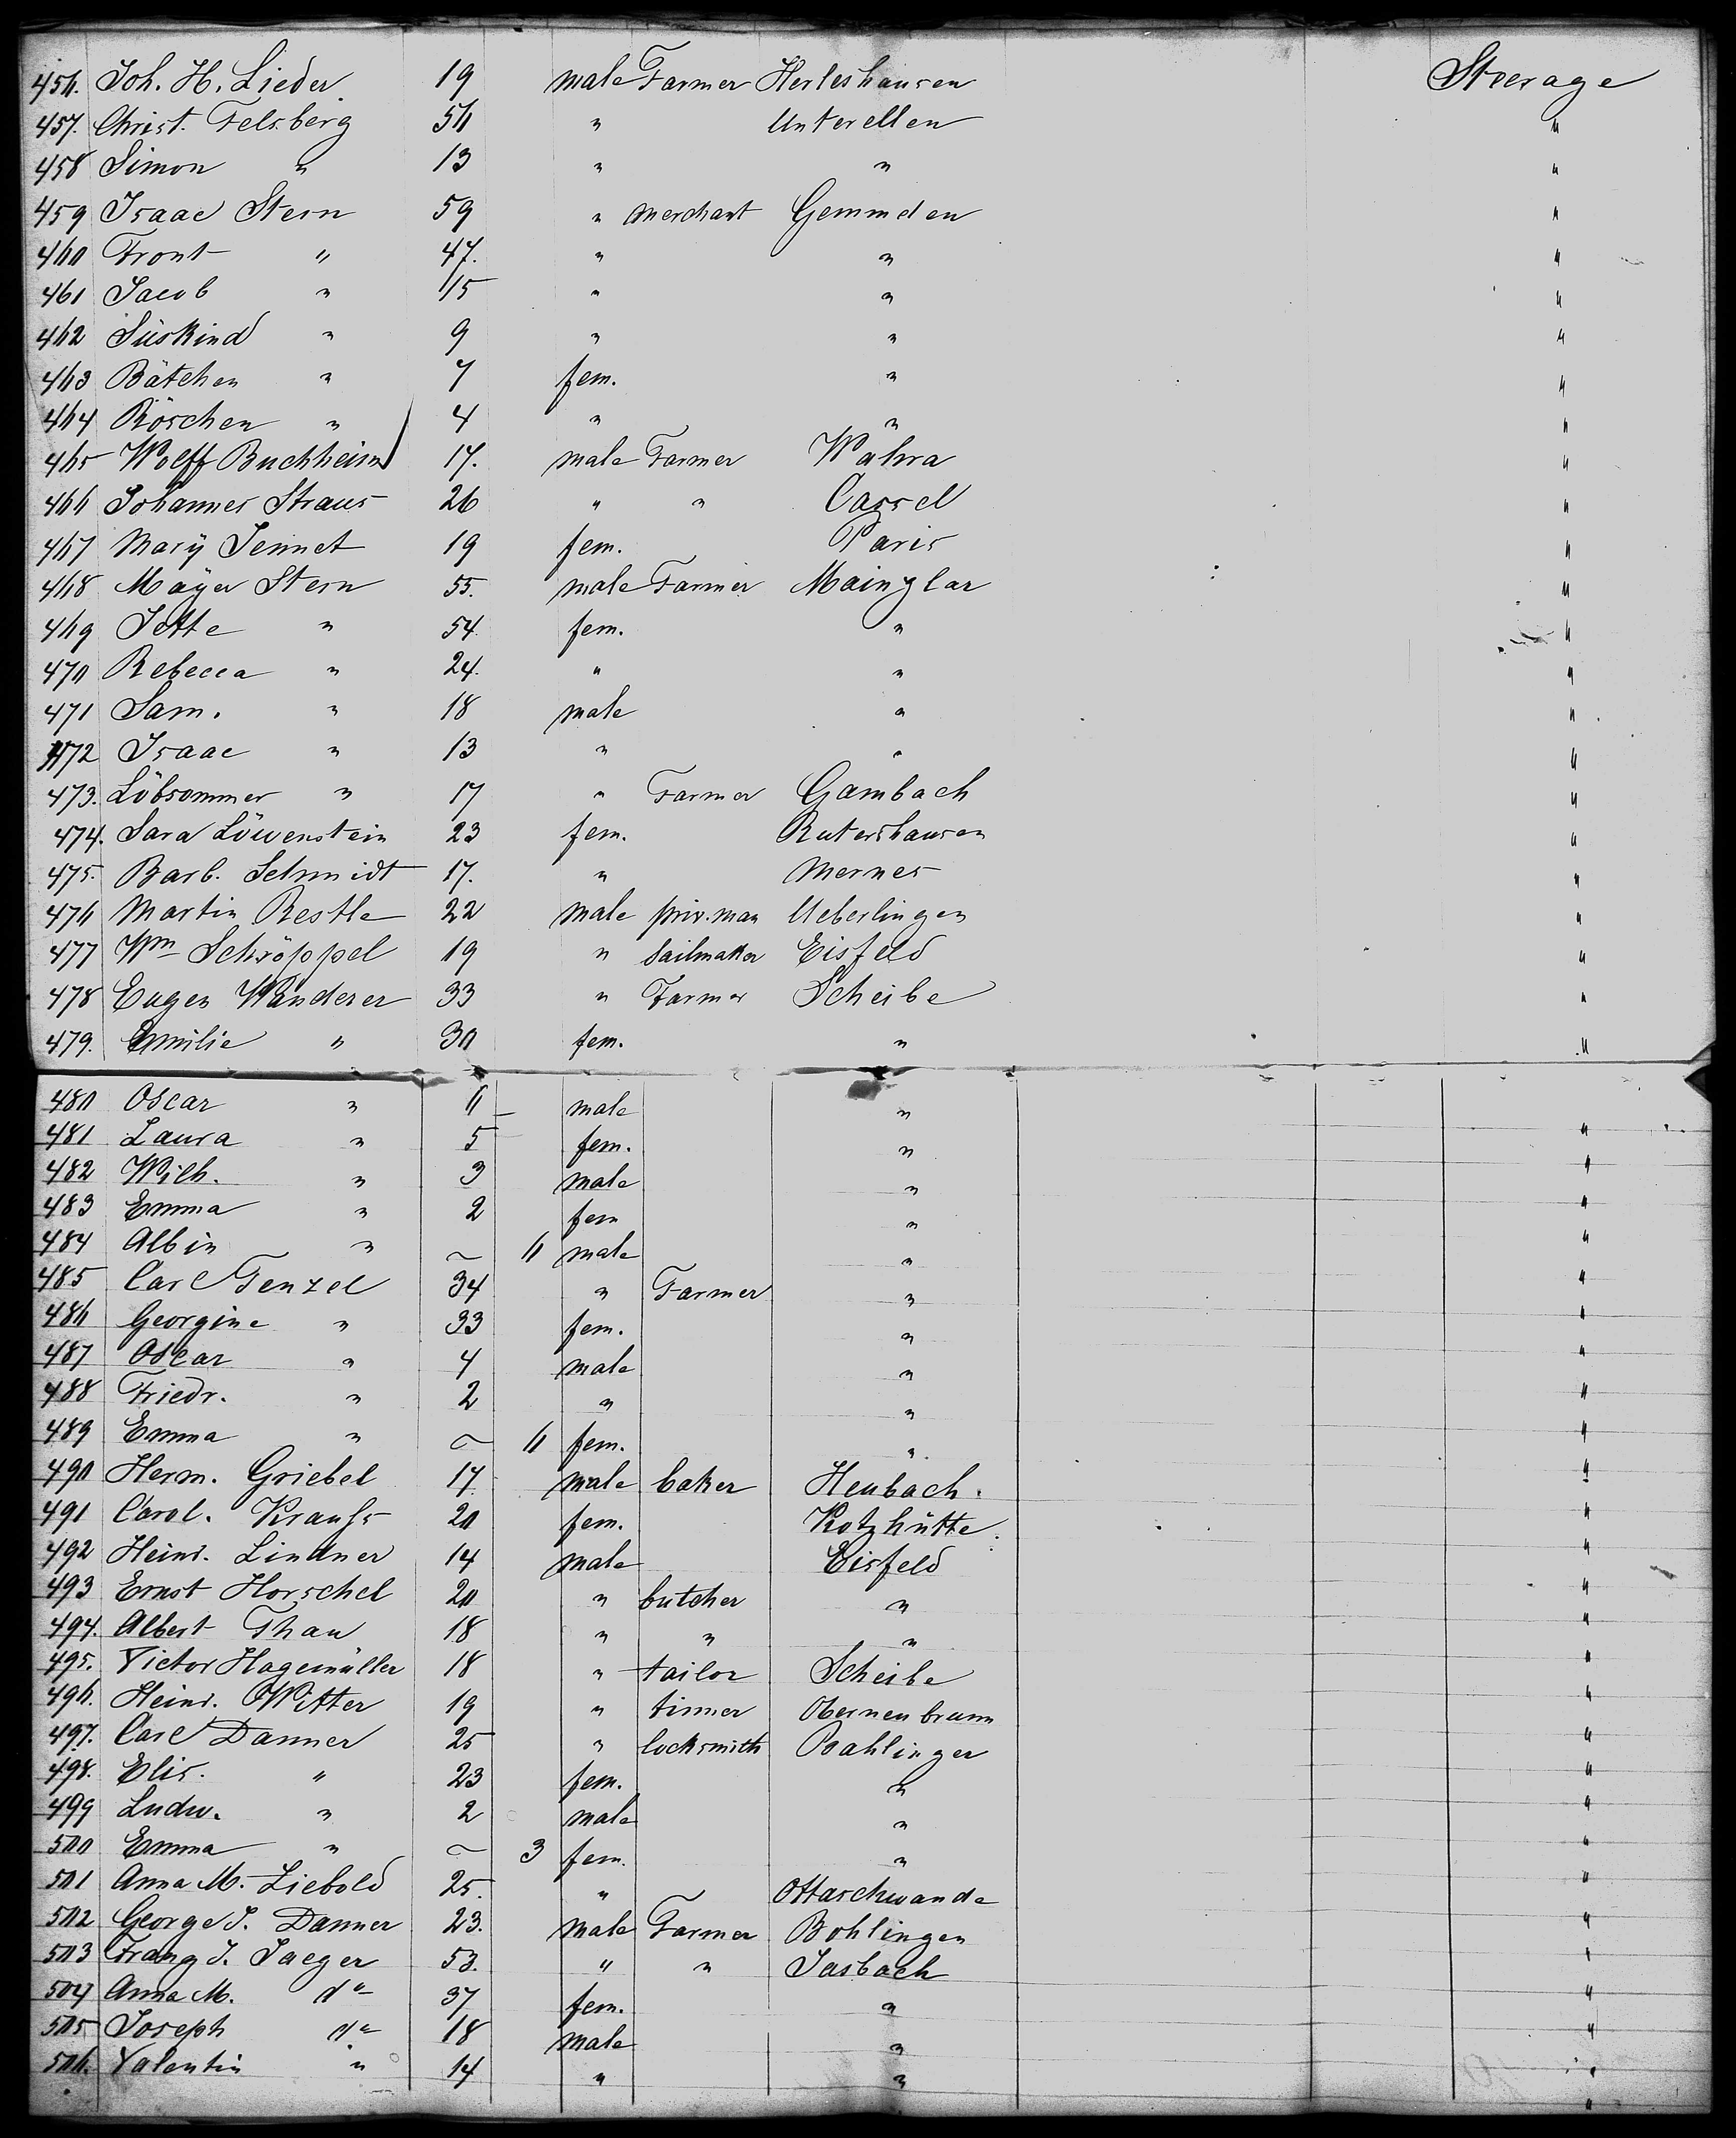 456. Joh. H. Lieder 19 male Farmer Herleshausen Steerage
457. Christ. Felsberg 56 " Unterellen "
458 Simon " 13 " " "
459 Isaac Stern 59 " merchant Gemmden "
460 Front " 47. " " "
461 Jacob " 15 " " "
462 Süskind " 9 " " "
463 Bätchen " 7 fem. " "
464 Röschen " 4 " " "
465 Wolff Buchheim 17. male Farmer Wahra "
466 Johannes Straus 26 " " Cassel "
467 Mary Jennet 19 fem. Paris "
468 Mayer Stern 55. male Farmer Mainzlar "
469 Jette " 54. fem. " "
470 Rebecca " 24. " " "
471 Sam. " 18 male " "
472 Isaac " 13 " " "
473. Löbsommer " 17 " Farmer Gambach "
474. Sara Löwenstein 23 fem. Rutershausen "
475. Barb. Schmidt 17. " Mernes "
476 Martin Restle 22 male priv. man Ueberlingen "
477 Wm Schröppel 19 " Sailmaker Eisfeld "
478 Eugen Wanderer 33 " Farmer Scheibe "
479. Emilie " 30 fem. " "
480 Oscar " 6 male "
481 Laura " 5 fem. " "
482 Wilh. " 3 male " "
483 Emma " 2 fem " "
484 Albin " ~ 6 male " "
485 Carl Tenzel 34 " Farmer " "
486 Georgine " 33 fem. " "
487 Oscar " 4 male " "
488 Friedr. " 2 " " "
489 Emma " ~ 6 fem. " "
490 Herm. Griebel 17. male baker Heubach. "
491 Carol. Kraufs 20 fem. Kotzhütte. "
492 Heinr. Lindner 14 male Eisfeld "
493 Ernst Horschel 20 " butcher " "
494. Albert Thau 18 " " " "
495. Victor Hagemüller 18 " tailor Scheibe "
496. Heinr. Witter 19 " tinner Oberneubrunn "
497. Carl Danner 25 " locksmith Bahlinger "
498. Elis. " 23 fem. " "
499 Ludw. " 2 male " "
500 Emma " ~ 3 fem. " "
501 Anna M. Liebold 25. " Ottaschwanda "
502 George J. Danner 23. male Farmer Bohlingen "
503 Franz J. Jaeger 53. " " Sasbach "
504 Anna M. do 37 fem. " "
505 Joseph do 18 male " "
506. Valentin " 14 " " "